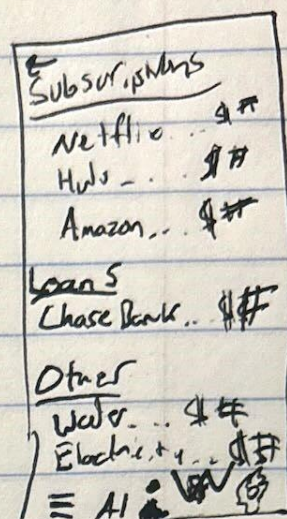 Subscriptions
Netflix... $#
Hulu... $#
Amazon... $#
Loans
Chase Bank.. $#
Other
Water... $#
Electricity... $#
AI